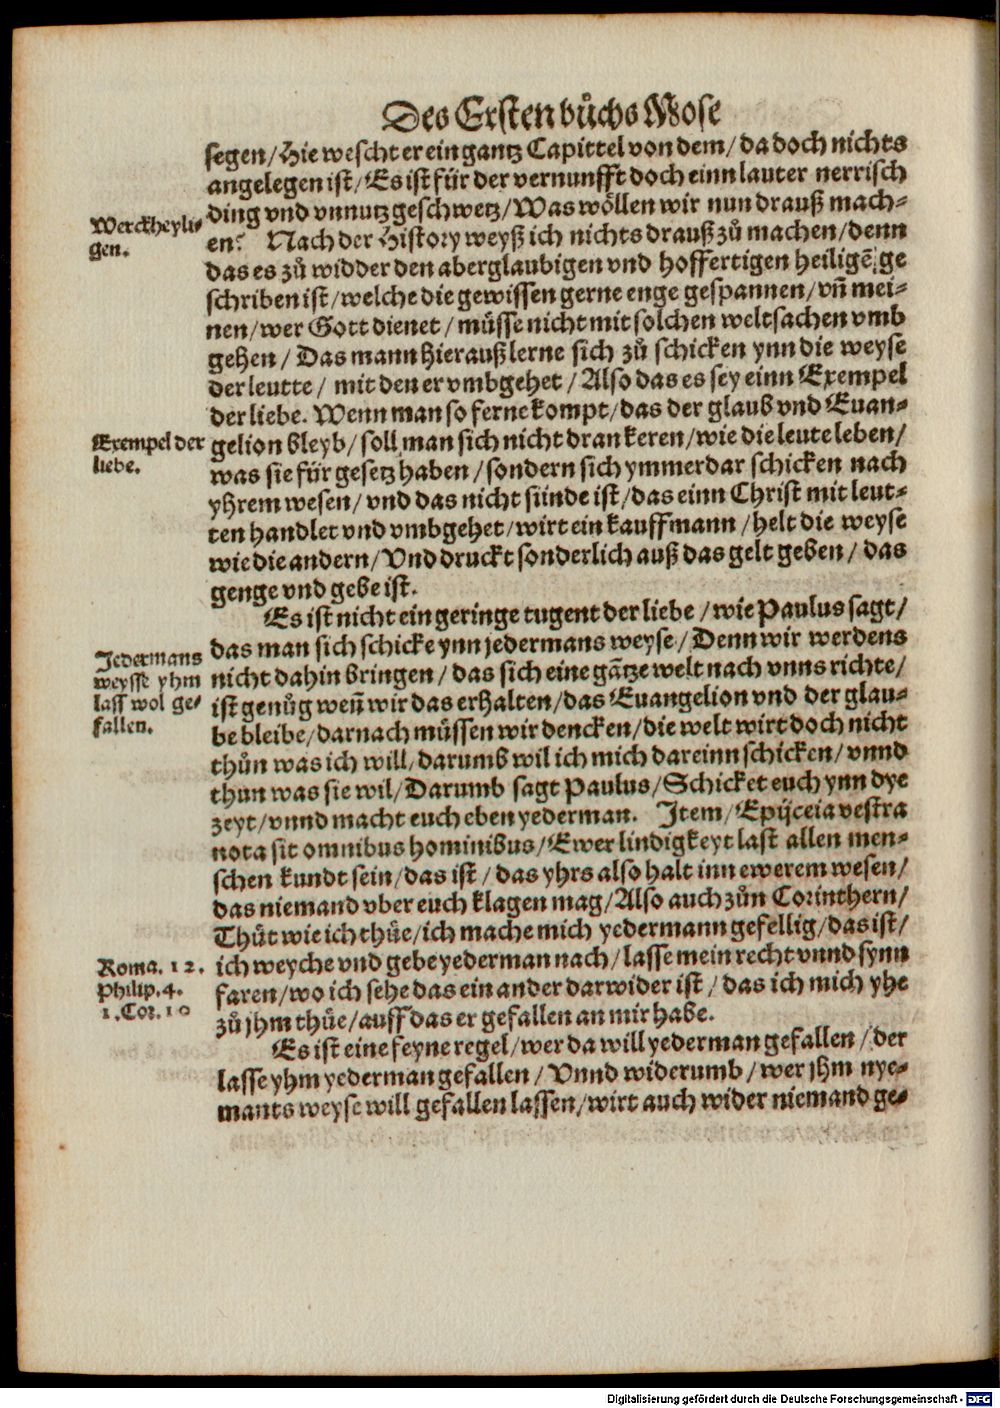 Des Ersten bůchs Mose
segen/ Hie wescht er ein gantz Capittel von dem/ da doch nichts
angelegen ist/ Es ist für der vernunfft doch einn lauter nerrisch
ding vnd vnnutz geschwetz/ Was wöllen wir nun drauß mach-
en? Nach der History weyß ich nichts drauß zů machen/ denn
das es zů widder den aberglaubigen vnd hoffertigen heiligē ge
schriben ist/ welche die gewissen gerne enge gespannen/ vñ mei-
nen/ wer Gott dienet/ müsse nicht mit solchen weltsachen vmb
gehen/ Das mann hierauß lerne sich zů schicken ynn die weyse
der leutte/ mit den er vmbgehet/ Also das es sey einn Exempel
der liebe. Wenn man so ferne kompt/ das der glaub vnd Euan-
gelion bleyb/ soll man sich nicht dran keren/ wie die leute leben/
was sie für gesetz haben/ sondern sich ymmerdar schicken nach
yhrem wesen/ vnd das nicht sünde ist/ das einn Christ mit leut-
ten handlet vnd vmbgehet/ wirt ein kauffmann/ helt die weyse
wie die andern/ Vnd druckt sonderlich auß das gelt geben/ das
genge vnd gebe ist.
Es ist nicht ein geringe tugent der liebe/ wie Paulus sagt/
das man sich schicke ynn jedermans weyse/ Denn wir werdens
nicht dahin bringen/ das sich eine gātze welt nach vnns richte/
ist genůg weñ wir das erhalten/ das Euangelion vnd der glau-
be bleibe/ darnach müssen wir dencken/ die welt wirt doch nicht
thůn was ich will/ darumb wil ich mich dareinn schicken/ vnnd
thun was sie wil/ Darumb sagt Paulus/ Schicket euch ynn dye
zeyt/ vnnd macht euch eben yederman. Item/ Epijceia vestra
nota sit omnibus hominibus/ Ewer lindigkeyt last allen men-
schen kundt sein/ das ist/ das yhrs also halt inn ewerem wesen/
das niemand vber euch klagen mag/ Also auch zůn Corinthern/
Thůt wie ich thůe/ ich mache mich yedermann gefellig/ das ist/
ich weyche vnd gebe yederman nach/ lasse mein recht vnnd synn
faren/ wo ich sehe das ein ander darwider ist/ das ich mich yhe
zů jhm thůe/ auff das er gefallen an mir habe.
Es ist eine feyne regel/ wer da will yederman gefallen/ der
lasse yhm yederman gefallen/ Vnnd widerumb/ wer jhm nye-
mants weyse will gefallen lassen/ wirt auch wider niemand ge-
Werckheyli-
gen.
Exempel der
liebe.
Jedermans
weysse yhm
lass wol ge-
fallen.
Roma. 12.
Philip. 4.
1. Cor. 10
Digitalisierung gefördert durch die Deutsche Forschungsgemeinschaft - DFG